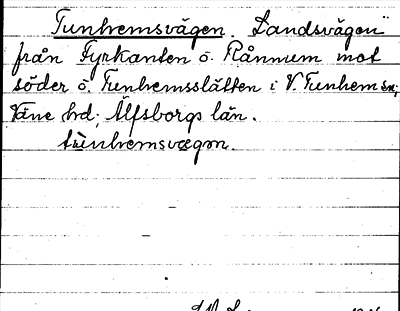 Tunhemsvägen. Landsvägen
från Fyrkanten ö. Rånnum mot
söder ö. Tunhemsslätten i V. Tunhem sn,
Väne hd, Älfsborgs län.
tùnhemsvægən.